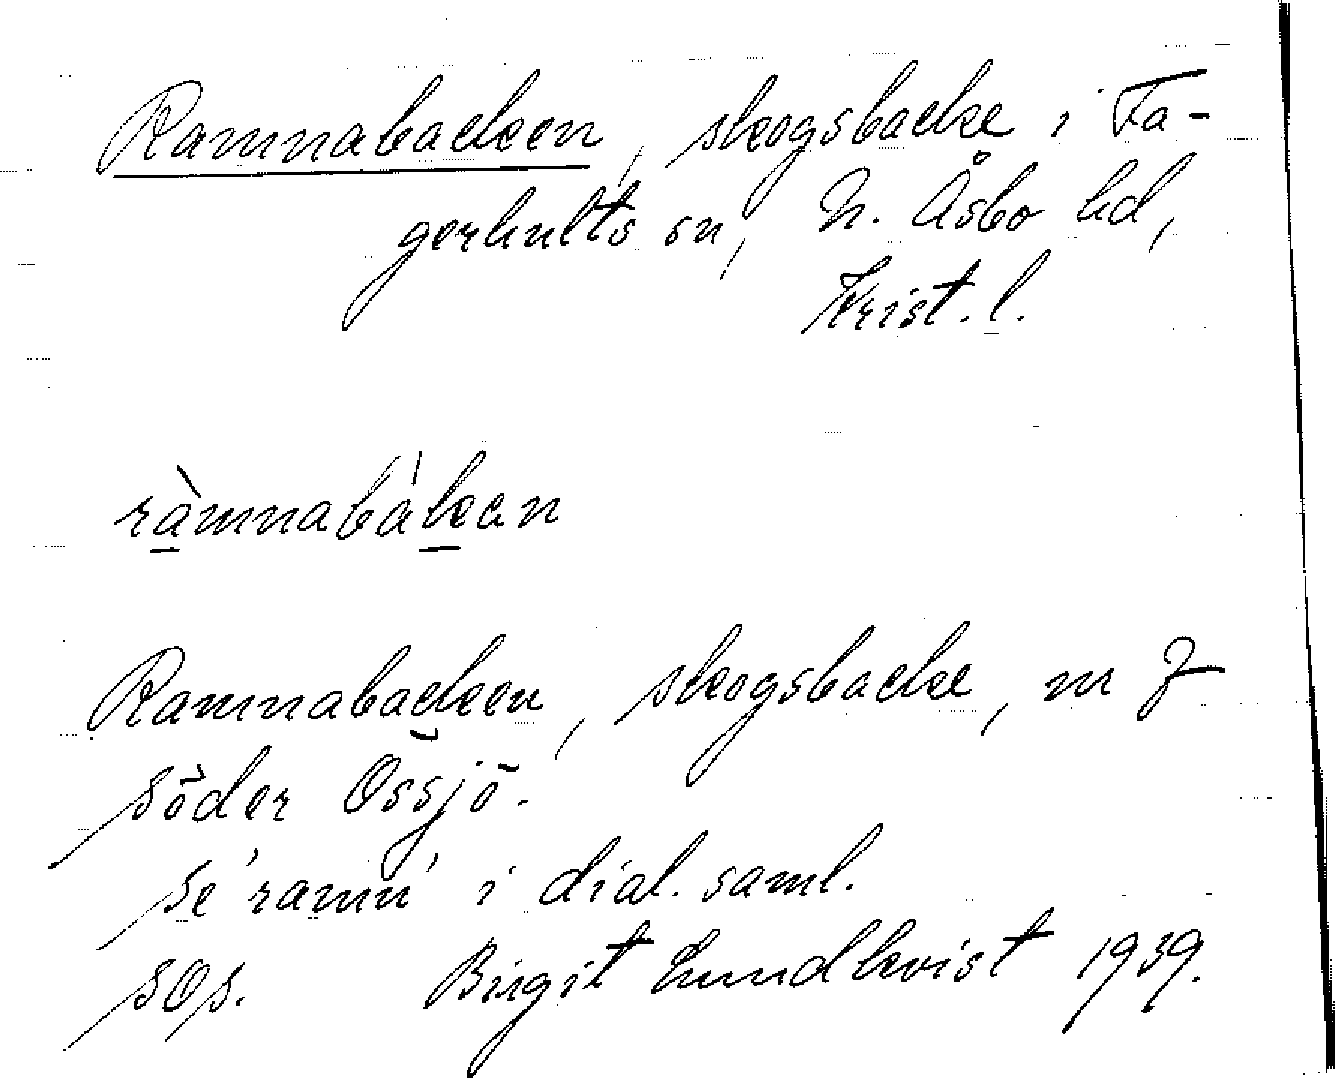 Ramnabacken, skogsbacke i Fa-
gerhults sn, N. Åsbo hd,
Krist. l.
ràmnabákan
Ramnabacken, skogsbacke, m
söder Ossjö.
Se 'ramn' i dial. saml.
SOf. Birgit Lundkvist 1939.